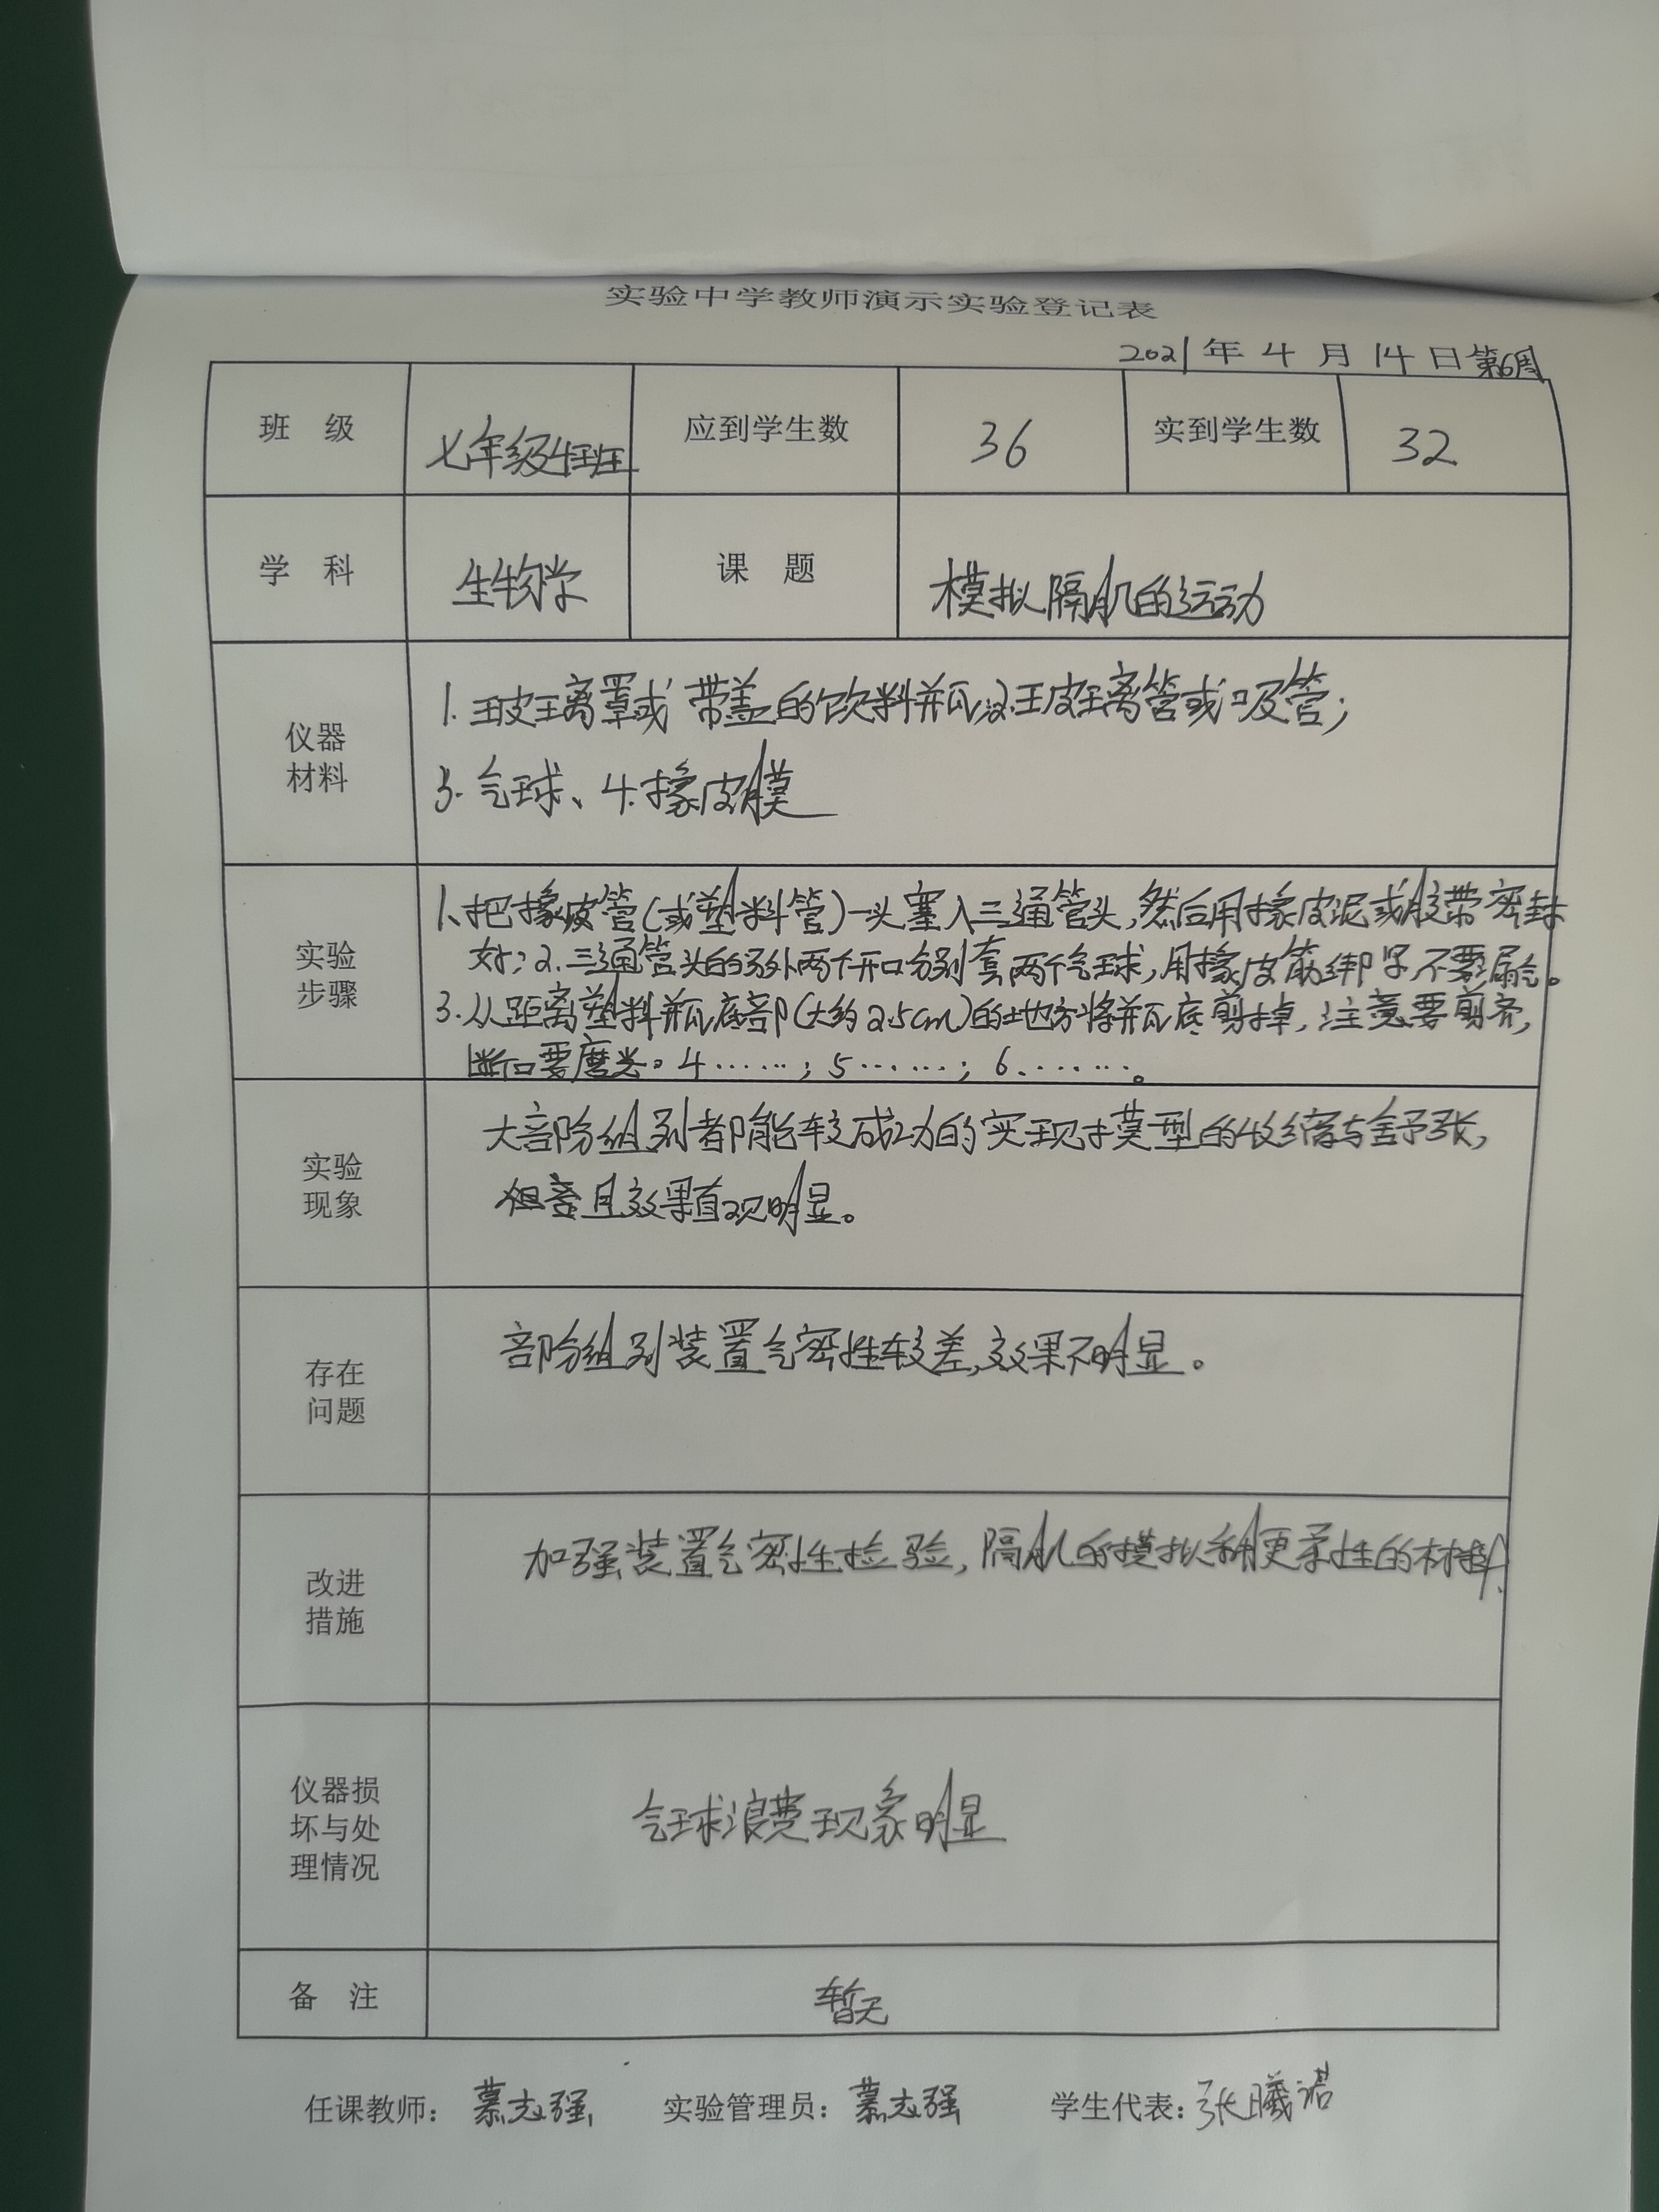 实验中学教师演示实验登记表
2021年4月14日第6周
班 级 七年级4班 应到学生数 36 实到学生数 32
学 科 生物学 课 题 模拟膈肌的运动
仪器
材料
1.玻璃罩或带盖的饮料瓶;2.玻璃管或吸管;
3.气球、4.橡皮膜
实验
步骤
1、把橡皮管(或塑料管)一头塞入三通管头,然后用橡皮泥或胶带密封
好;2.三通管头的另外两个开口分别套两个气球,用橡皮筋绑牢不要漏气。
3.从距离塑料瓶底部(大约2.5cm)的地方将瓶底剪掉,注意要剪齐,
断口要磨光。4……;5……;6.……。
实验
现象
大部份组别都能较成功的实现模型的收缩与舒张,
且效果直观明显。
存在
问题
部份组别装置气密性较差,效果不明显。
改进
措施
加强装置气密性检验,隔肌的模拟和更柔性的材料.
仪器损
坏与处
理情况
气球浪费现象明显
备 注 暂无
任课教师: 慕志强 实验管理员: 慕志强 学生代表: 张曦诺